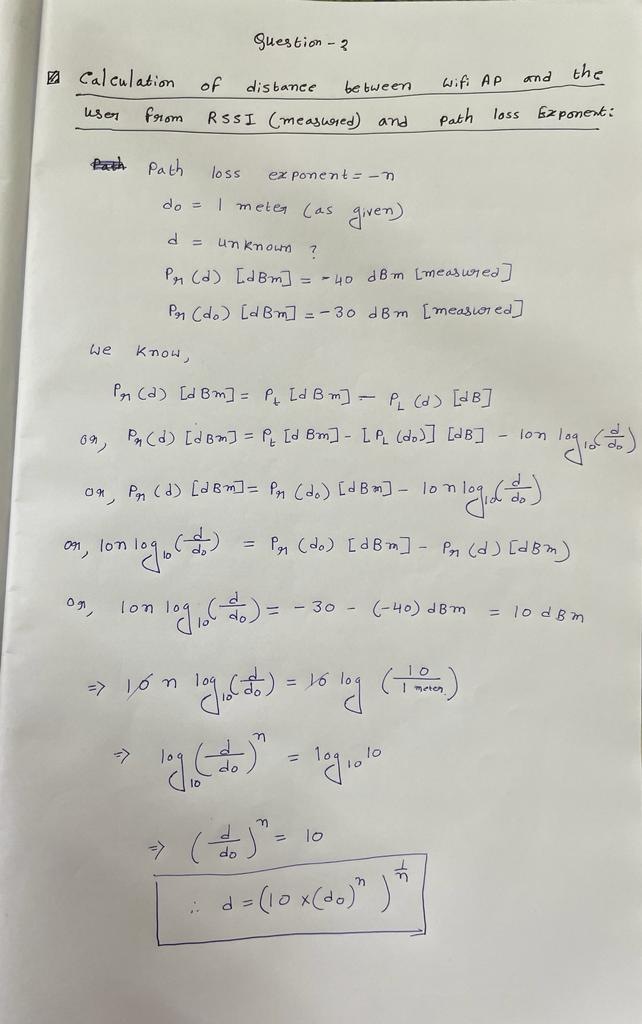 Question - 2
Calculation of distance between Wifi AP and the
user from RSSI (measured) and path loss Exponent:
Path Path loss exponent = -n
do = 1 meter (as given)
d = unknown ?
Pr (d) [dBm] = -40 dBm [measured]
Pr (do) [dBm] = -30 dBm [measured]
We know,
Pr (d) [dBm] = Pt [dBm] - PL (d) [dB]
or, Pr (d) [dBm] = Pt [dBm] - [PL (do)] [dB] - 10n log10 (d/do)
or, Pr (d) [dBm] = Pr (do) [dBm] - 10 n log10 (d/do)
or, 10n log10 (d/do) = Pr (do) [dBm] - Pr (d) [dBm)
or, 10n log10 (d/do) = -30 - (-40) dBm = 10 dBm
=> 10 n log10 (d/do) = 10 log (10/1 meter)
=> log10 (d/do)^n = log10 10
=> (d/do)^n = 10
∴ d = (10 x (do)^n)^1/n